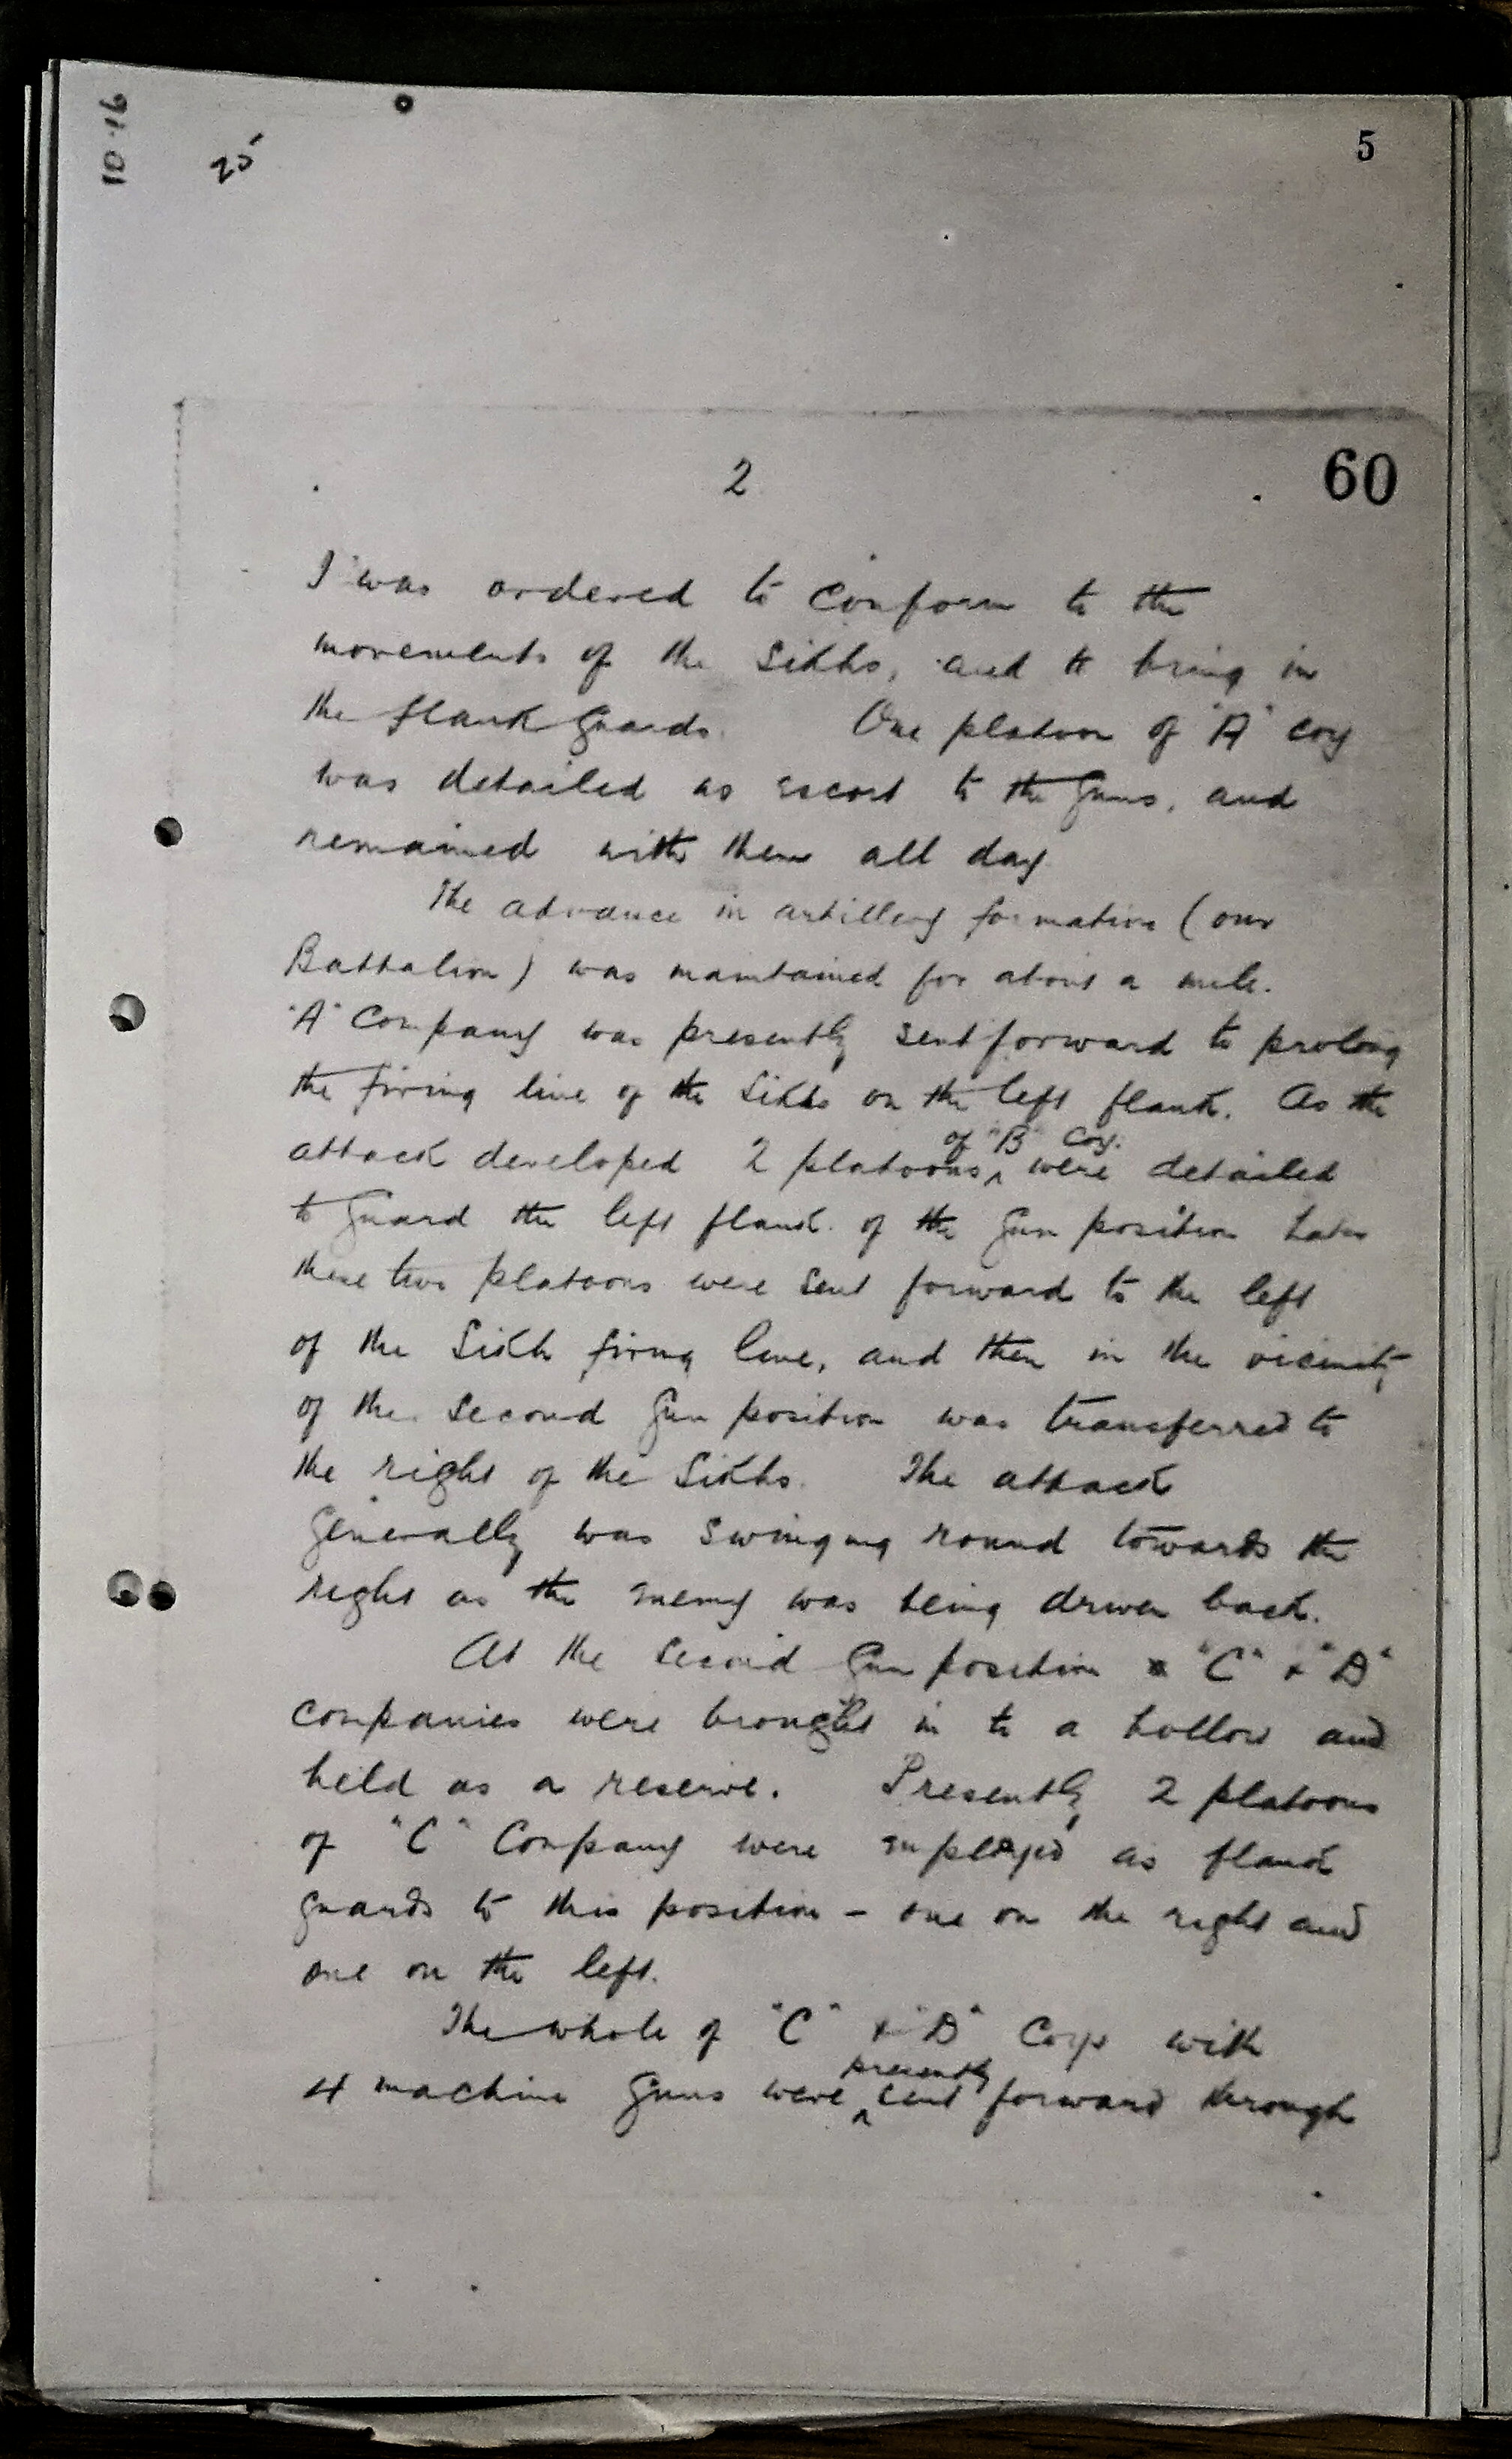 10.16
25
5
2
60
I was ordered to conform to the
movements of the Sikhs, and to bring in
the flank guards. One platoon of "A" coy
was detailed as escort to the guns, and
remained with them all day
The advance in artillery formation (our
Battalion) was maintained for about a mile.
"A" Company was presently sent forward to prolong
the firing line of the Sikhs on the left flank. As the
of "B" Coy.
attack developed 2 platoons ^ were detailed
to guard the left flank of the gun position Later
these two platoons were sent forward to the left
of the Sikh firing line, and then in the vicinity
of the second gun position was transferred to
the right of the Sikhs. The attack
generally was swinging round towards the
right as the enemy was being driven back.
At the second gun position "C" & "D"
companies were brought in to a hollow and
held as a reserve. Presently 2 platoons
of "C" Company were employed as flank
guards to this position - one on the right and
one on the left.
The whole of "C" & "D" Coys with
presently
4 machine guns were ^ sent forward through